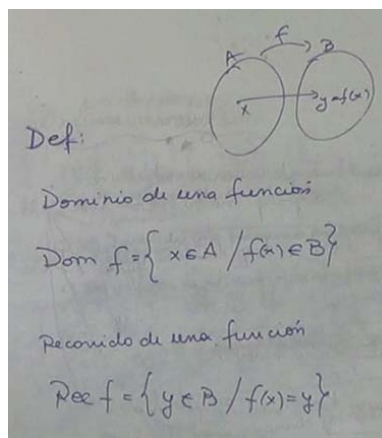 f
A B
x y=f(x)
Def:
Dominio de una función
Dom f = { x ∈ A / f(x) ∈ B }
Recorrido de una función
Rec f = { y ∈ B / f(x) = y }